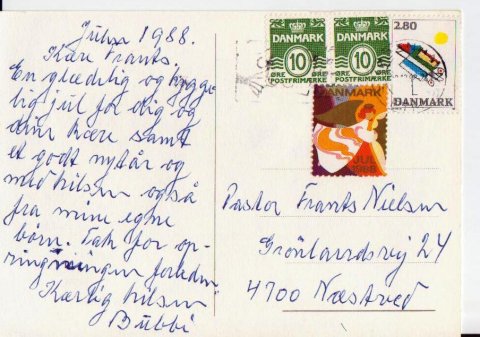 Julen 1988.
Kære Frants,
En glædelig og hygge
lig jul for dig og
dine kære samt
et godt nytår og
med hilsen også
fra mine egne
børn. Tak for op-
ringningen forleden
Kærlig hilsen
Bubbi
DANMARK
10
ØRE
POSTFRIMÆRKE
DANMARK
10
ØRE
POSTFRIMÆRKE
2.80
DANMARK
DANMARK
JUL
1988
Pastor Frants Nielsen
Grönlandsvej 24
4700 Næstved